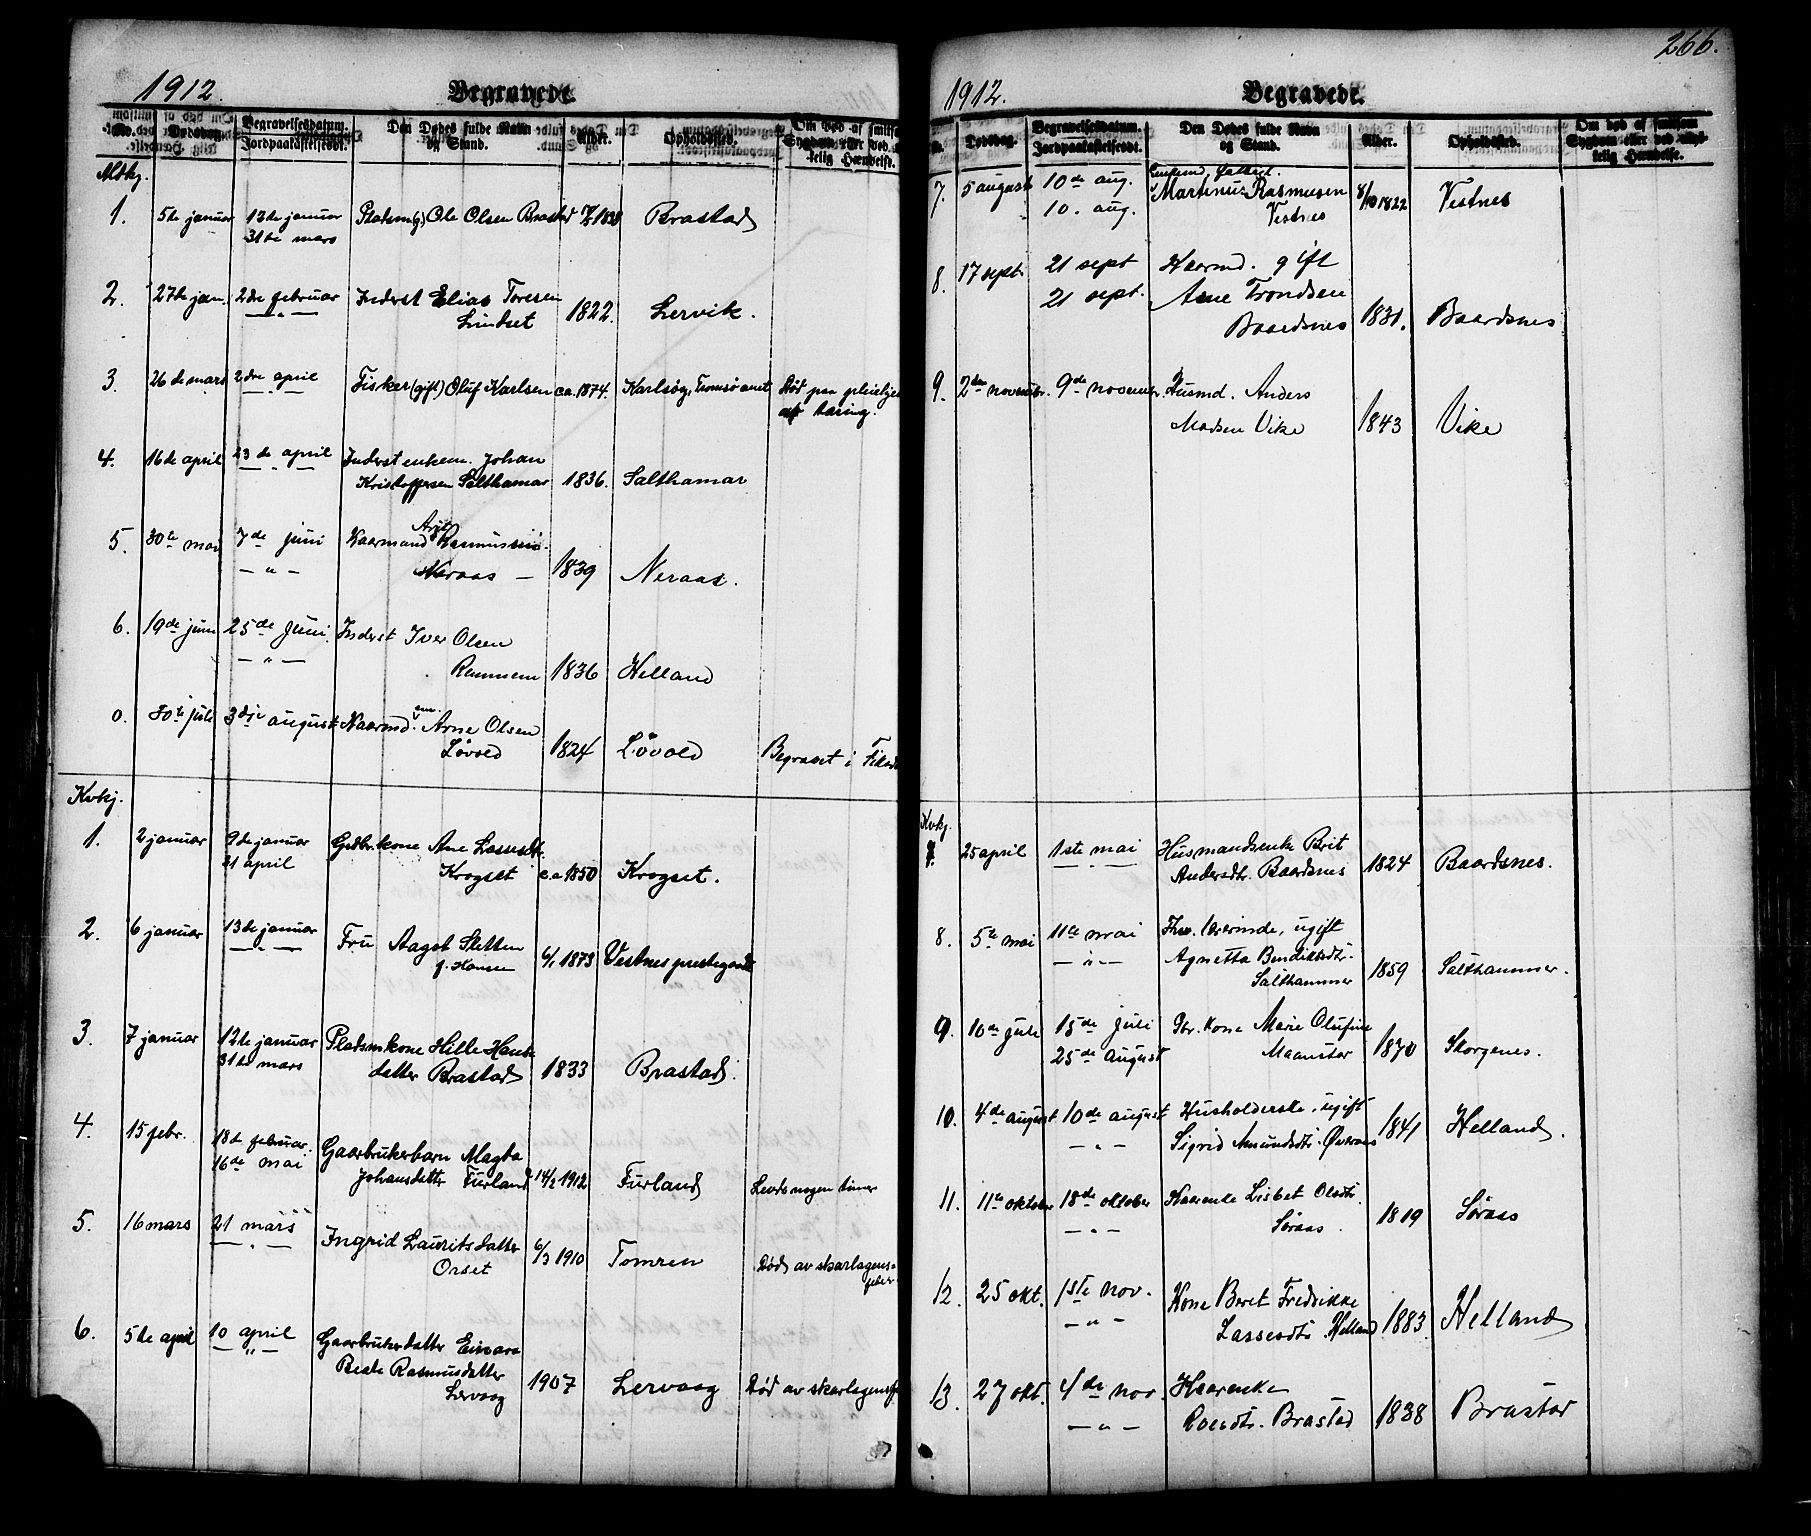 1912.
Begravede.
No.
Dødsdag.
Begravelsesdatum.
Jordpaakastelsesdt.
Den Dødes fulde Navn
og Stand.
Alder.
Opholdssted.
Om død af smitsom
Sygdom eller ved
kelig Hændelse.
Mtkj.
1. 5te januar 12te januar Pladsm(g) Ole Olsen Brastad Brastad
31te mars
2. 27de jan. 2den februar Inderst Elias Toresen
— " — Lindset 1822. Lervik.
3. 26de mars 2den april Fisker (gift) Oluf Karlsen ca. 1874. Karlsøy, Tromsø amt Død paa pleiehjem
— " — af tæring.
4. 16de april 23de april Inderst enkem. Johan
— " — Kristoffersen Salthamar 1836. Salthamar
5. 30te mai 7de juni Kaarmand Rasmussen
— " — Neraas — 1839 Neraas.
6. 19de juni 25de juni Inderst Iver Olsen
— " — Remmem 1836 Helland
0. 30te juli 3dje august Kaarmd. em. Arne Olsen
Løvold 1824 Løvold Begravet i
Kvkj.
1. 2 januar 9de januar Gdbr.kone Ane Lassesdtr.
21 april Krogset ca 1850 Krogset.
2. 6 januar 13de januar Fru Aagot Sletten
— " — f. Hansen 6/1 1873 Vestnes prestegaard
3. 7 januar 12te januar Pladsmkone Hille Hans
31te mars datter Brastad 1833 Brastad.
4. 15 febr. 18de februar Gaarbrukerbarn Magda
16de mai Johansdatter Furland 14/2 1912 Furland Levde nogen timer
5. 16 mars 21 mars Ingrid Lauritsdatter
— " — Orset 6/3 1910 Tomren Død av skarlagens-
feber
6. 5te april 10 april Gaarbrukerdatter Einara
— " — Beate Rasmusdatter
Lervaag 1907 Lervaag Død av skarlagensf
266.
1912.
Begravede.
Dødsdag.
Begravelsesdatum.
Jordpaakastelsesdt.
Den Dødes fulde Navn
og Stand.
Alder.
Opholdssted.
Om død af smitsom
Sygdom eller ved ulyk-
kelig Hændelse.
7. 5 august 10de aug. Martinus Rasmusen
10. aug. Vestnes 8/10 1822 Vestnes
8. 17 sept. 21 sept Kaarmd. gift
21 sept. Arne Trondsen
Baardsnes 1831. Baardsnes
9. 2den novembr. 9de november. Husmd. Anders
Madsen Vike 1843 Vike
Kvkj.
7. 25 april 1ste mai Husmandsenke Brit
— " — Andersdtr. Baardsnes 1824 Baardsnes.
8. 5te mai 11te mai lærerinde, ugift
— " — Agnetta Bendiksdtr.
Salthammer 1859 Salthammer.
9. 10de juli 15de juli Gbr. kone Marie Olufine
25de august Maanstør 1870 Skorgenes.
10. 4de august 10de august Husholderske, ugift
— " — Sigrid Amundsdtr. Øveraas 1841 Helland.
11. 11te oktober 18de oktober Kaarenke Lisbet Olsdtr.
— " — Søraas. 1819 Søraas
12. 25 okt. 1ste nov. Kone Beret Fredrikke
— " — Lassesdtr Helland 1883 Helland
13. 27 okt. 4de nov. Kaarenke
— " — Brastad 1838 Brastad